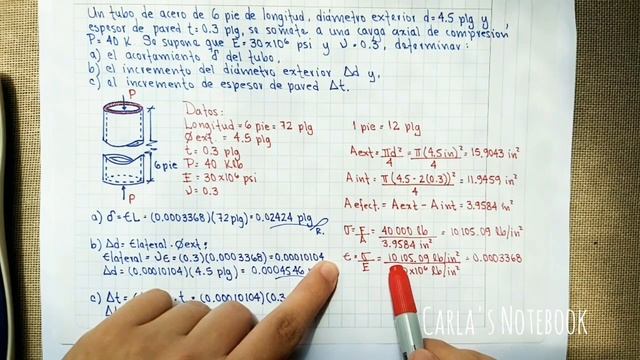 Un tubo de acero de 6 pie de longitud, diámetro exterior d= 4.5 plg y
espesor de pared t= 0.3 plg, se somete a una carga axial de compresión,
P= 40 K. Se supone que E= 30x10⁶ psi y ν= 0.3, determinar:
a) el acortamiento δ del tubo,
b) el incremento del diámetro exterior Δd y,
c) el incremento de espesor de pared Δt.
P
6 pie
P
Datos:
Longitud = 6 pie = 72 plg
Øext. = 4.5 plg
t = 0.3 plg
P = 40 Klb
E = 30x10⁶ psi
ν = 0.3
1 pie = 12 plg
Aext = πd²/4 = π(4.5in)²/4 = 15.9043 in²
Aint = π(4.5-2(0.3))²/4 = 11.9459 in²
Aefect = Aext - Aint = 3.9584 in²
σ = F/A = 40 000 lb/3.9584 in² = 10 105.09 lb/in²
ε = σ/E = 10 105.09 lb/in²/x10⁶ lb/in² = 0.0003368
a) δ = εL = (0.0003368)(72 plg) = 0.02424 plg R.
b) Δd = εlateral · Øext;
εlateral = νε = (0.3)(0.0003368) = 0.00010104
Δd = (0.00010104)(4.5 plg) = 0.0004546
c) Δt = · t = (0.00010104)(0.3
CARLA'S NOTEBOOK